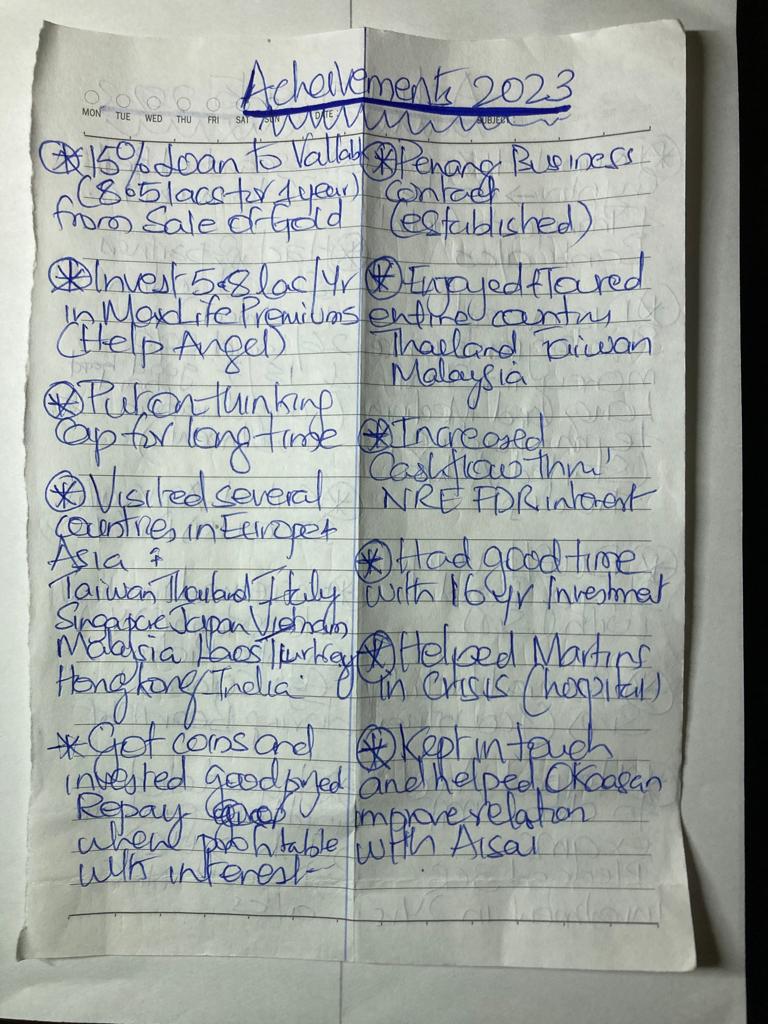 Acheivements 2023
MON TUE WED THU FRI SAT SUN DATE SUBJECT
15% Loan to Vallabh
(8.5 lacs for 1 year)
from Sale of Gold
Invest 5.8 lac/Yr
in MaxLife Premiums
(Help Angel)
Put on thinking
Cap for long time
Visited several
countries in Europe +
Asia
Taiwan Thailand Italy
Singapore Japan Vietnam
Malaysia Laos Turkey
Hongkong/India
Got coins and
invested good
Repay
when profitable
with interest
Penang Business
contact
(established)
Enjoyed & Toured
entire country
Thailand Taiwan
Malaysia
Increased
Cashflow thru'
NRE FDR interest
Had good time
with 16yr Investment
Helped Martins
in Crisis (hospital)
Kept in touch
and helped Okaasan
improve relation
with Aisai